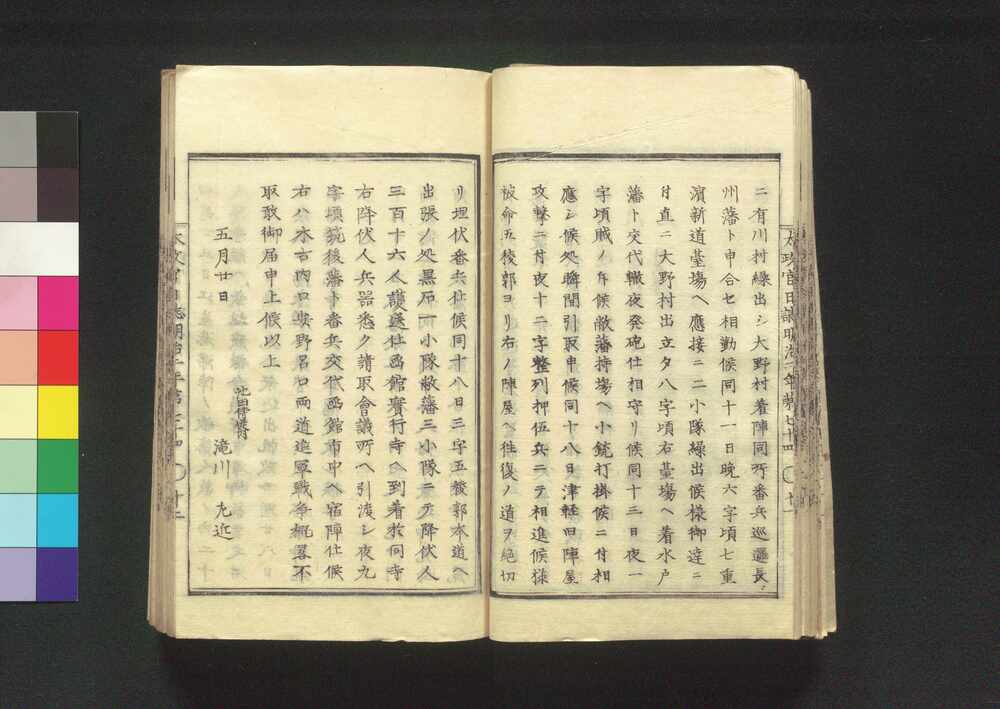 ニ有川村繰出シ大野村着陣同所番兵巡邏長
州藩ト申合セ相勤候同十一日晩六字頃七重
濱新道臺場ヘ應接ニ二小隊繰出候様御達ニ
付直ニ大野村出立夕八字頃右臺場ヘ着水戸
藩ト交代轍夜発砲仕相守リ候同十三日夜一
字頃賊ノ斥候敝藩持場ヘ小銃打掛候ニ付相
應シ候処瞬間引取申候同十八日津軽四陣屋
攻撃ニ付夜十二字整列押伍兵ニテ相進候様
被命五稜郭ヨリ右ノ陣屋ヘ往復ノ道ヲ絶切
太政官日誌明治二年第七十四 十一
リ埋伏番兵仕候同十八日三字五稜郭本道ヘ
出張ノ処黒石一小隊敝藩三小隊ニテ降伏人
三百十六人護送仕函館實行寺ヘ到着於同寺
右降伏人兵器悉ク請取會議所ヘ引渡シ夜九
字頃筑後藩ト番兵交代函館市中ヘ宿陣仕候
右ハ木古内口安野呂口両道進軍戦争概畧不
取敢御届申上候以上
五月廿日
滝川
太政官日誌明治二年第七十四 十二